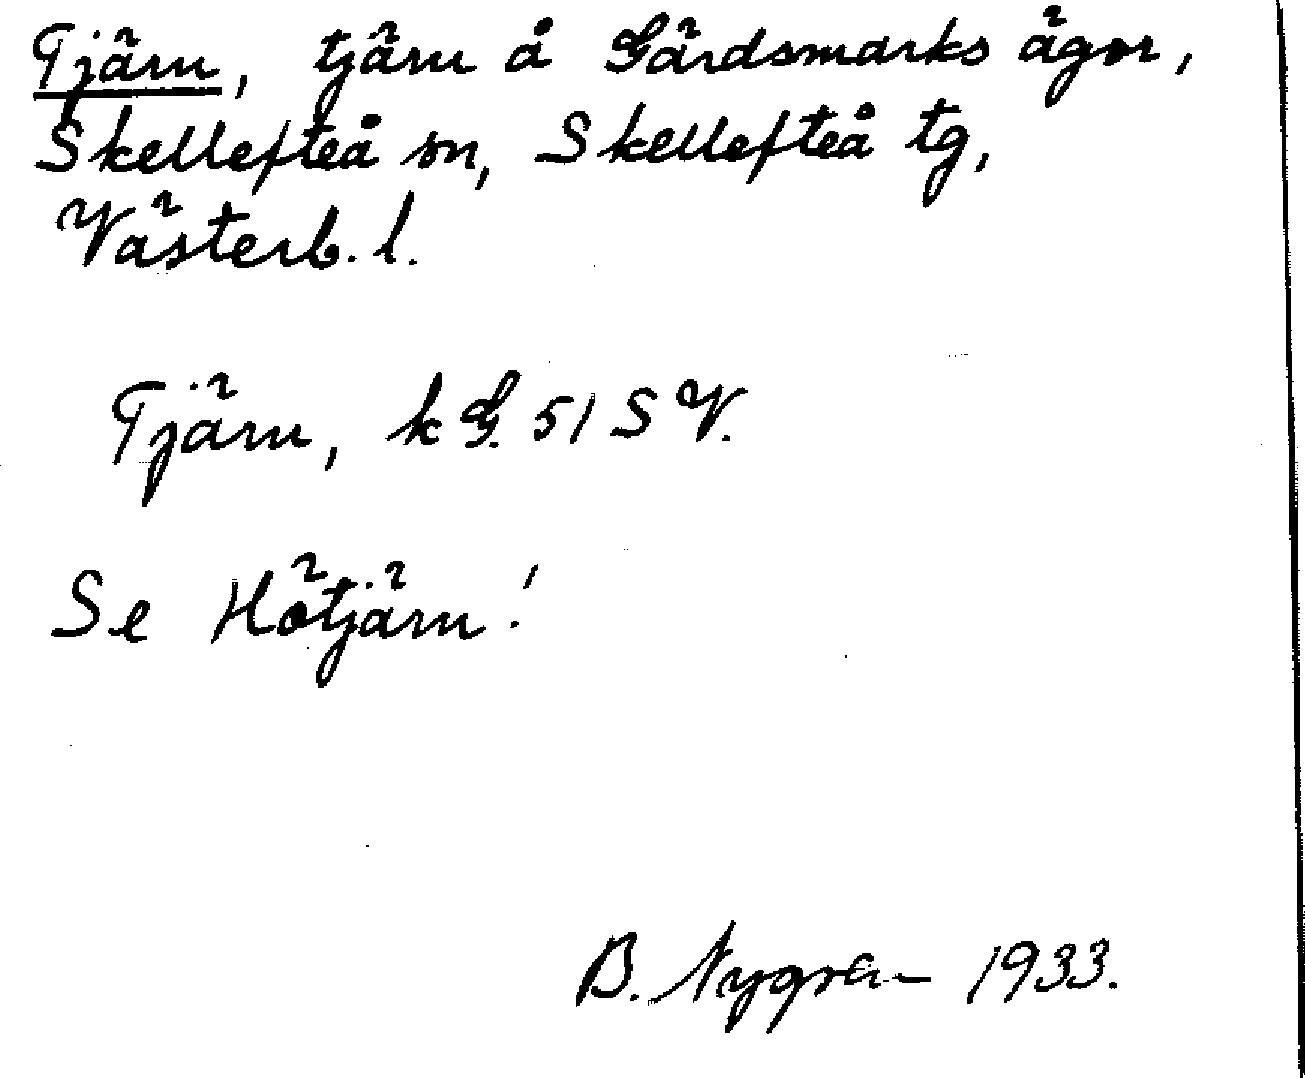 Tjärn, tjärn å Gärdsmarks ägor,
Skellefteå sn, Skellefteå tg,
Västerb. l.
Tjärn, k G. 51 S V.
Se Hötjärn!
B. Nygren 1933.